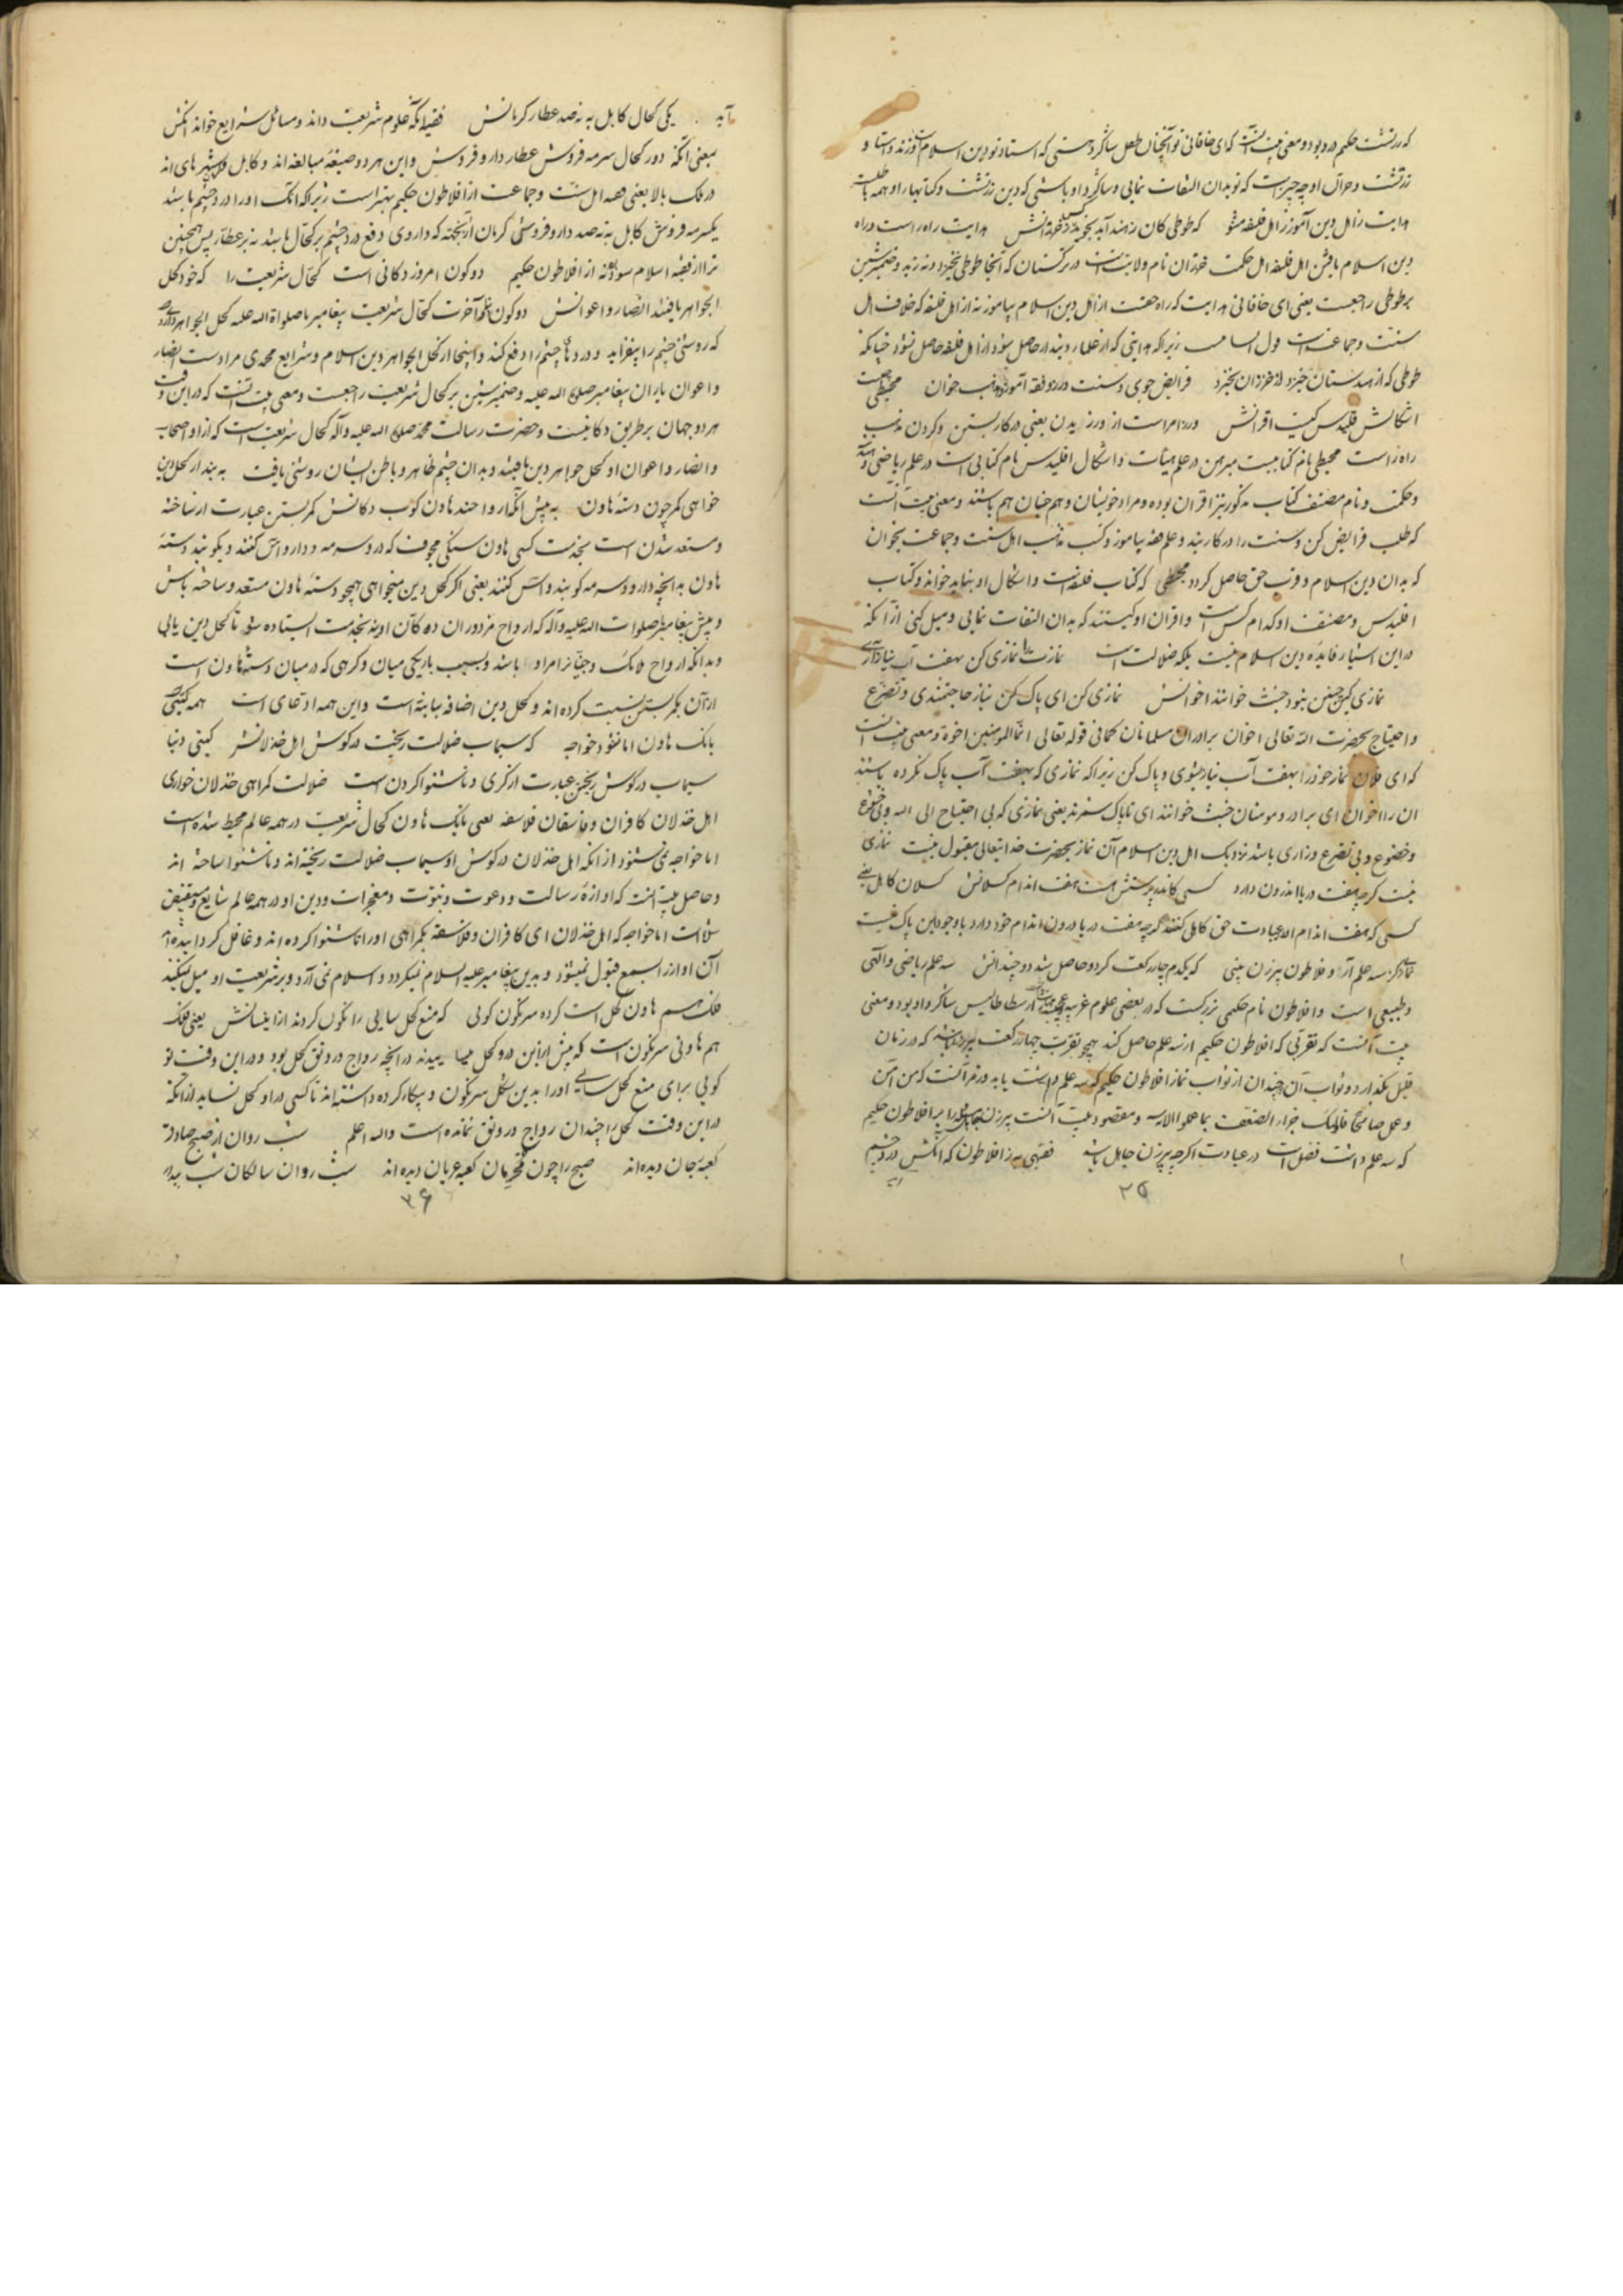 که زردشت حکیم در و بود و معنی بیت آنست که ای خاقانی تو آنچنان طفل شاگرد هستی که استاد تو دین اسلام است و زند و استا و
زردشت و حران او چه چیز است که تو بدان التفات نمایی و شاگرد او باشی که دین زردشت و کتابها او همه باطلست
هدایت ز اهل دین آموز ز اهل فلسفه مشنو که طوطی کان ز هند آید نجوید کس خزرانش هدایت راه راست و راه
دین اسلام یافتن اهل فلسفه اهل حکمت خزران نام ولایت است در ترکستان که آنجا طوطی نخیزد و نه زید و ضمیر شین
بر طوطی راجعست یعنی ای خاقانی هدایت که راه حقست از اهل دین اسلام بیاموز نه از اهل فلسفه که خلاف اهل
سنت و جماعت است زیرا که هدایتی که از علماء دیندار حاصل شود از اهل فلسفه حاصل نشود چنانکه
طوطی که از هندستان خیزد از خزران نخیزد فرایض جوی و سنت ورز و فقه آموز و مذهب خوان مجسطی چیست
اشکالش قلیدس کیست اقرانش ورز امر است از ورزیدن یعنی در کار بستن و کردن مذهب
راه راست مجسطی نام کتابیست مبرهن در علم هیئات و اشکال اقلیدس نام کتابی است در علم ریاضی و هندسه
و حکمت و نام مصنف کتاب مذکور نیز اقران بوده و مراد خویشان و هم جنسان هم باشند و معنی بیت آنست
که طلب فرایض کن و سنت را در کار بند و علم فقه بیاموز و کتب مذهب اهل سنت و جماعت بخوان
که بدان دین اسلام و قرب حق حاصل گردد مجسطی که کتاب فلسفه است و اشکال او نباید خواند و کتاب
اقلیدس و مصنف او کدام کس است و اقران او کیستند که بدان التفات نمایی و میل کنی از آنکه
در این اشیاء فایده دین اسلام نیست بلکه ضلالت است نمازت را نمازی کن بهفت آب نیاز ار نی
نمازی کاین چنین نبود جنب خوانند اخوانش نمازی کن ای پاک کن نیاز حاجتمندی و تضرع
و احتیاج بحضرت الله تعالی اخوان برادران مسلمانان کما فی قوله تعالی انما المومنین اخوة و معنی بیت آنست
که ای فلان نماز خود را بهفت آب نیاز بشوی و پاک کن زیرا که نمازی که بهفت آب پاک نکرده باشند
آن را اخوان ای برادر و مومنان جنب خوانند ای ناپاک شمرند یعنی نمازی که بی احتیاج الی الله و بی خشوع
و خضوع و بی تضرع و زاری باشد نزدیک اهل دین اسلام آن نماز بحضرت خدایتعالی مقبول نیست نمازی
نیست گرچه هفت دریا اندرون دارد کسی کاندر پرستش هست هفت اندام کسلانش کسلان کاهل یعنی
کسی که هفت اندام او بعبادت حق کاهلی کنند گرچه هفت دریا درون اندام خود دارد با وجود این پاک نیست
نماز کز سه علم آرد فلاطون پیرزن بینی که یکدم چار رکعت کرد و حاصل شد دو چندانش سه علم ریاضی و الهی
و طبیعی است و افلاطون نام حکیمی بزرگست که در بعضی علوم غریبه ارسطاطالیس شاگرد او بود و معنی
بیت آنست که تقربی که افلاطون حکیم از سه علم حاصل کند همچو تقرب چهار رکعت پیرزن باشد که در زمان
قلیل بگذارد و ثواب آن دو چندان از ثواب نماز افلاطون حکیم که سه علم دانست یابد و رمز آنست که من آمن
و عمل صالحا فاولئک جزاء الضعف بما عملوا الآیه و مقصود بیت آنست پیرزن جاهل را بر افلاطون حکیم
که سه علم دانست فضل است در عبادت اگرچه پیرزن جاهل باشد فقیهی به ز افلاطون که آنکش درد چشم
۳۵
آید یکی کحال کابل به ز صد عطار کرمانش فقیه آنکه علوم شریعت داند و مسائل شرایع خواند آنکش
بمعنی آنکه کحال سرمه فروش عطار دارو فروش و این هر دو صیغه مبالغه اند و کابل و کرمان شهر های اند
در ملک بالا یعنی فقیه اهل سنت و جماعت از افلاطون حکیم بهتر است زیرا که آنک او را درد چشم باشد
یک سرمه فروش کابل به ز صد دارو فروش کرمان از آنجهته که داروی دفع درد چشم بر کحال باشد نه بر عطار پس همچنین
ترا از فقیه اسلام سود بود نه از افلاطون حکیم دو کون امروز دکانی است کحال شریعت را که خود کحل
الجواهر یافتند انصار و اعوانش دو کون دنیا و آخرت کحال شریعت پیغامبر ما صلواة الله علیه کحل الجواهر داروی
که روشنی چشم را بیفزاید و دردهای چشم را دفع کند و اینجا از کحل الجواهر دین اسلام و شرایع محمدی مراد ست انصار
و اعوان یاران پیغامبر صلی الله علیه و ضمیر شین بر کحال شریعت راجعست و معنی بیت آنست که در این وقت
هر دو جهان بر طریق دکانیست و حضرت رسالت محمد صلی الله علیه و آله کحال شریعت است که از او اصحاب
و انصار و اعوان او کحل جواهر دین یافتند و بدان چشم ظاهر و باطن ایشان روشنی یافت به بند ار کحل دین
خواهی کمر چون دسته هاون به پیش آنکه ارواحند هاون کوب دکانش کمر بستن عبارت از ساخته
و مستعد شدن است بخدمت کسی هاون سنگی مجوف که در و سرمه و دارو آس کنند و بکوبند دسته
هاون به آنچه دارو و سرمه کوبند و آس کنند یعنی اگر کحل دین میخواهی همچو دسته هاون مستعد و ساخته باش
و پیش پیغامبر صلوات الله علیه و آله که ارواح مزدوران دکان اویند بخدمت ایستاده شو تا کحل دین یابی
و بدانکه ارواح ملائک و جنیان مراد باشند و بسبب باریکی میان و گرهی که در میان دسته هاون است
از آن بکمر بستن نسبت کرده اند و کحل دین اضافه بیانیه است و این همه ادعای است همه گیتی
بانگ هاون اما نشنود خواجه که سیماب ضلالت ریخت در گوش اهل خذلانش گیتی دنیا
سیماب در گوش ریختن عبارت از کری و ناشنوا کردن است ضلالت گمراهی خذلان خواری
اهل خذلان کافران و فاسقان فلاسفه یعنی بانگ هاون کحال شریعت در همه عالم محیط شده است
اما خواجه نمی شنود از آنکه اهل خذلان در گوش او سیماب ضلالت ریخته اند و ناشنوا ساخته اند
و حاصل بیت آنست که آوازه رسالت و دعوت و نبوت و معجزات و دین او در همه عالم شایع و مستفیض
شد است اما خواجه که اهل خذلان ای کافران و فلاسفه بگمراهی او را ناشنوا کرده اند و غافل گردانیده اند
آن آواز را بسمع قبول نمیشنود و بدین پیغامبر علیه السلام نمیگردد و اسلام نمی آرد و بر شریعت او میل نمیکند
فلک هم هاون کحل است کرده سرنگون گویی که منع کحل سایی را نگون کردند از اینسانش یعنی فلک
هم هاونی سرنگون است که پیش از این درو کحل میساییدند در آنچه رواج و رونق کحل بود و در این وقت تو
گویی برای منع کحل سایی او را بدین شکل سرنگون و بیکار کرده داشته اند تا کسی در او کحل نساید از آنکه
در این وقت کحل را چندان رواج و رونق نمانده است والله اعلم شب روان از صبح صادق
کعبه جان دیده اند صبح را چون محرمان کعبه عریان دیده اند شب روان سالکان شب بیدار
۳۶